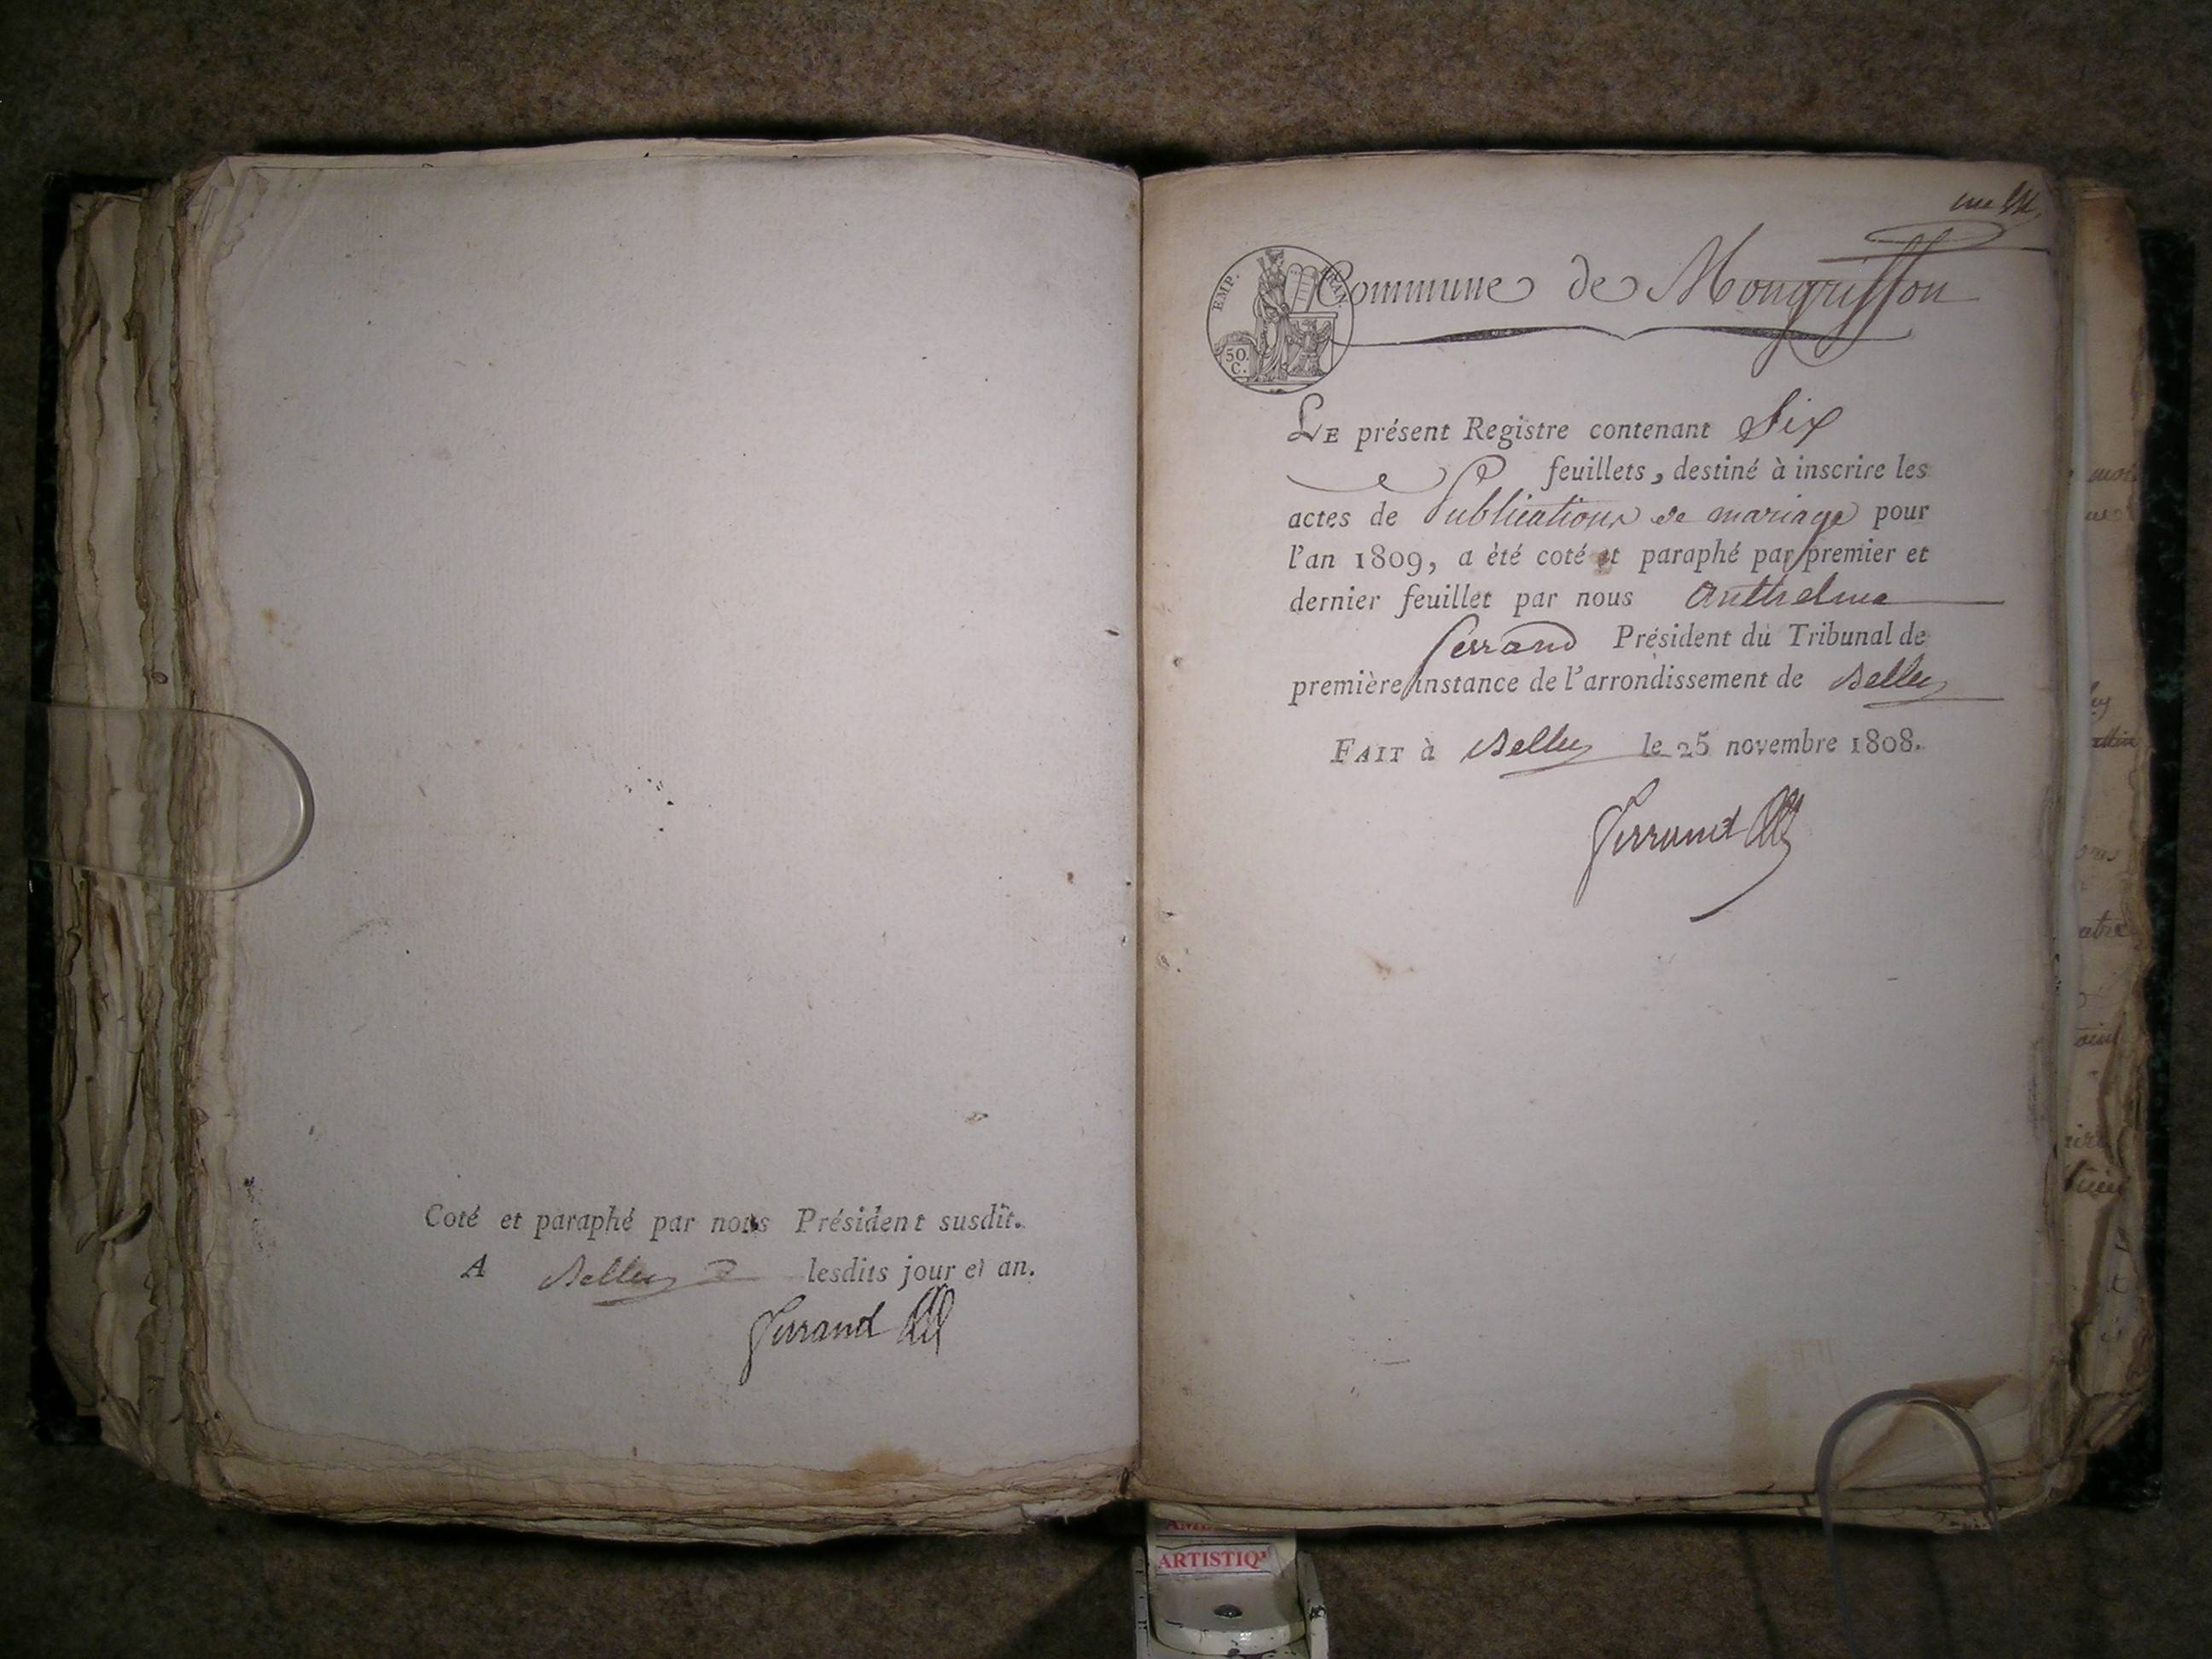 Coté et paraphé par nous Président susdit.
A Belley lesdits jour et an.
Ferrand
une
EMP. FRAN.
50.
C.
Commune de Mongriffon
LE présent Registre contenant Six
feuillets, destiné à inscrire les
actes de Publications de mariage pour
l'an 1809, a èté coté et paraphé par premier et
dernier feuillet par nous Anthelme
Ferrand Président du Tribunal de
première instance de l'arrondissement de Belley
FAIT à Belley le 25 novembre 1808.
Ferrand
ARTISTIQ